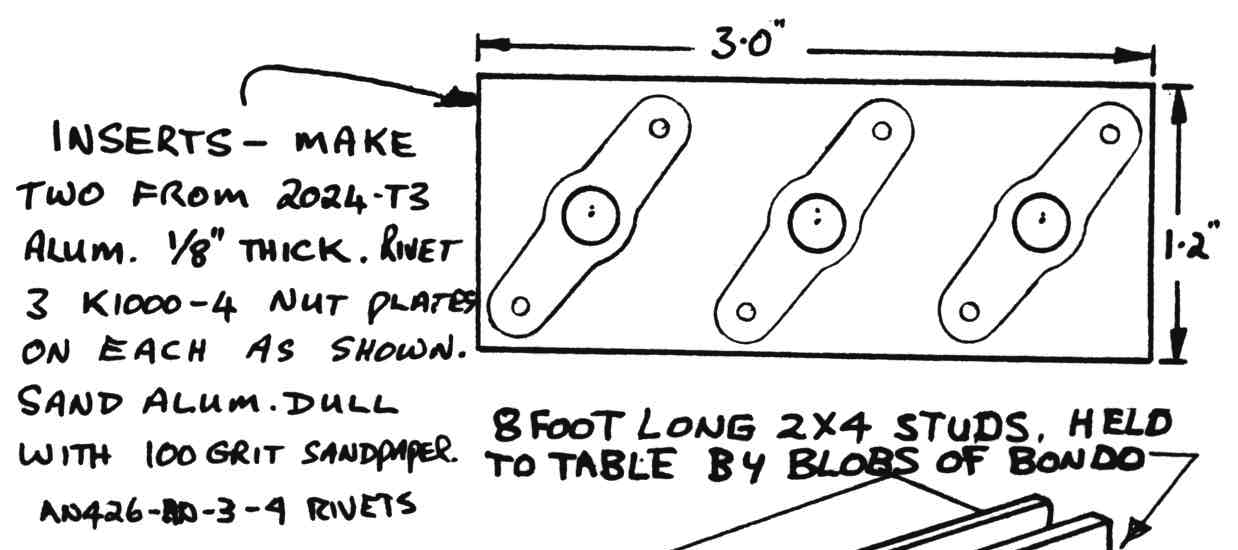 3.0"
INSERTS - MAKE
TWO FROM 2024-T3
ALUM. 1/8" THICK. RIVET
3 K1000-4 NUT PLATES
ON EACH AS SHOWN.
SAND ALUM. DULL
WITH 100 GRIT SANDPAPER.
AN426-AD-3-4 RIVETS
1.2"
8 FOOT LONG 2X4 STUDS, HELD
TO TABLE BY BLOBS OF BONDO